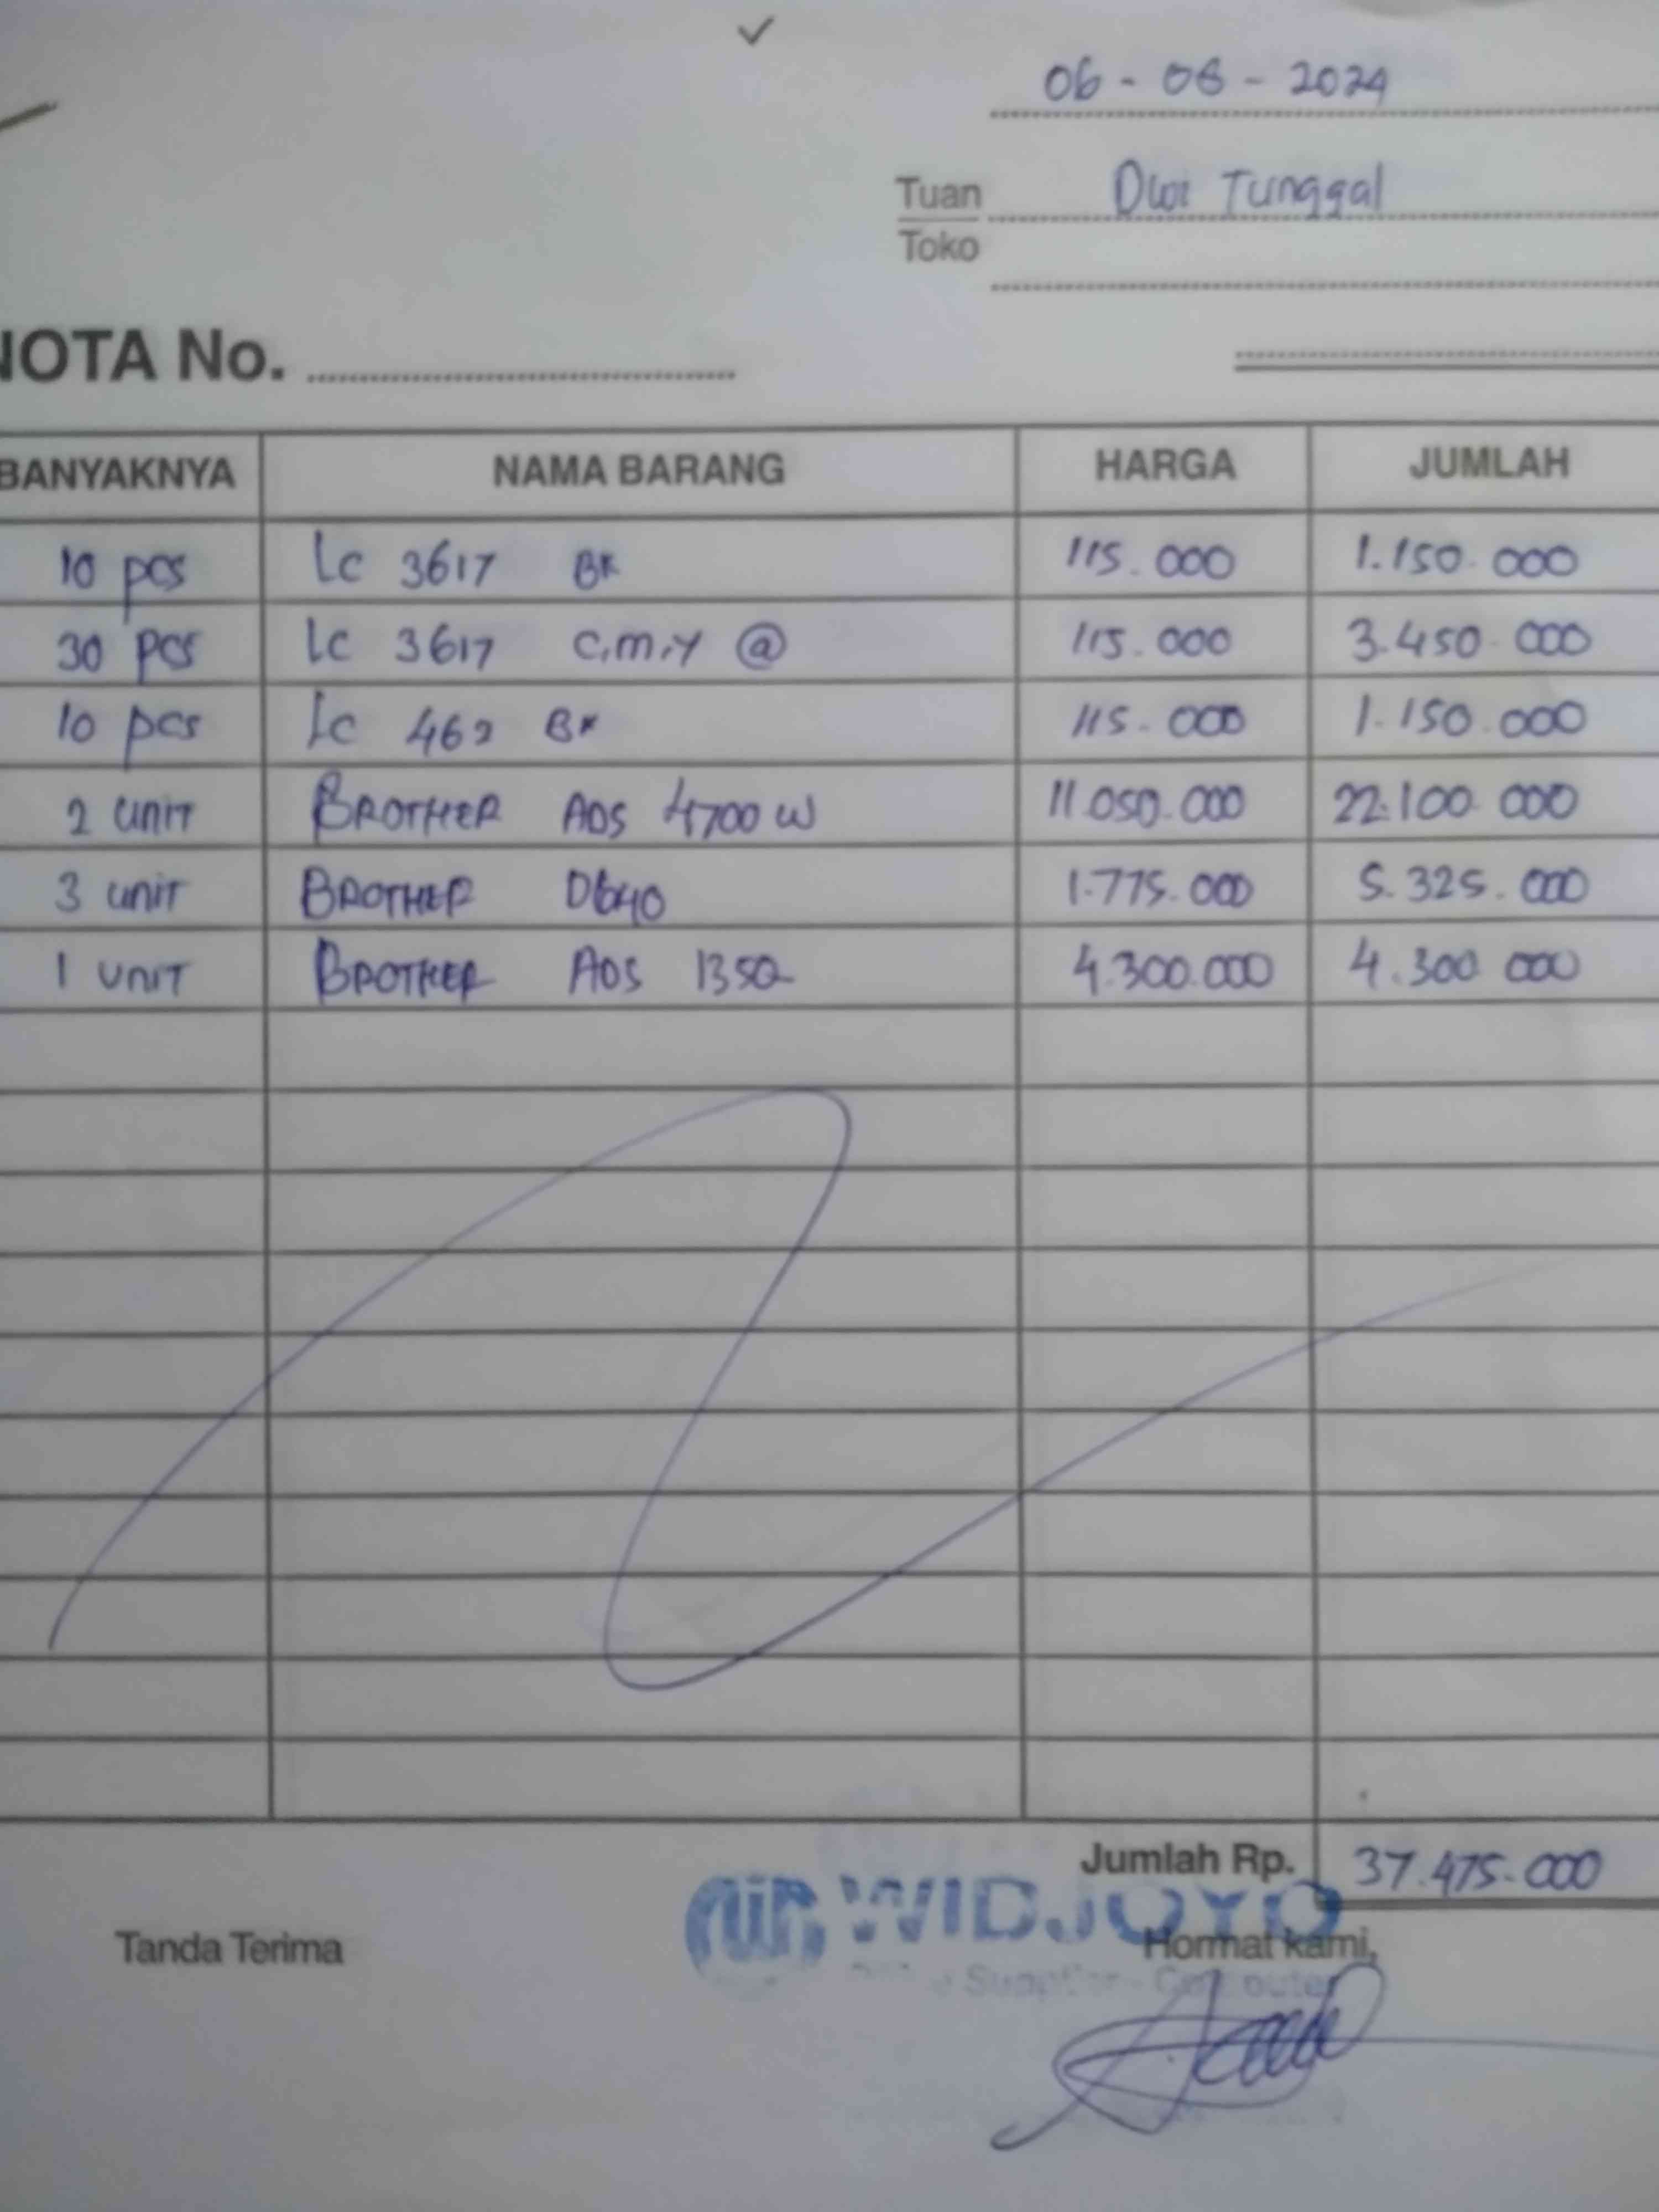 06 - 08 - 2024
Tuan Dwi Tunggal
Toko
NOTA No.
BANYAKNYA NAMA BARANG HARGA JUMLAH
10 pcs Lc 3617 BK 115.000 1.150.000
30 pcs Lc 3617 C,M,Y @ 115.000 3.450.000
10 pcs Lc 462 BK 115.000 1.150.000
2 unit BROTHER ADS 4700 W 11.050.000 22.100.000
3 unit BROTHER D640 1.775.000 5.325.000
1 unit BROTHER ADS 1350 4.300.000 4.300.000
Jumlah Rp. 37.475.000
WIDJOYO
Tanda Terima Hormat kami,
Supplier - Computer